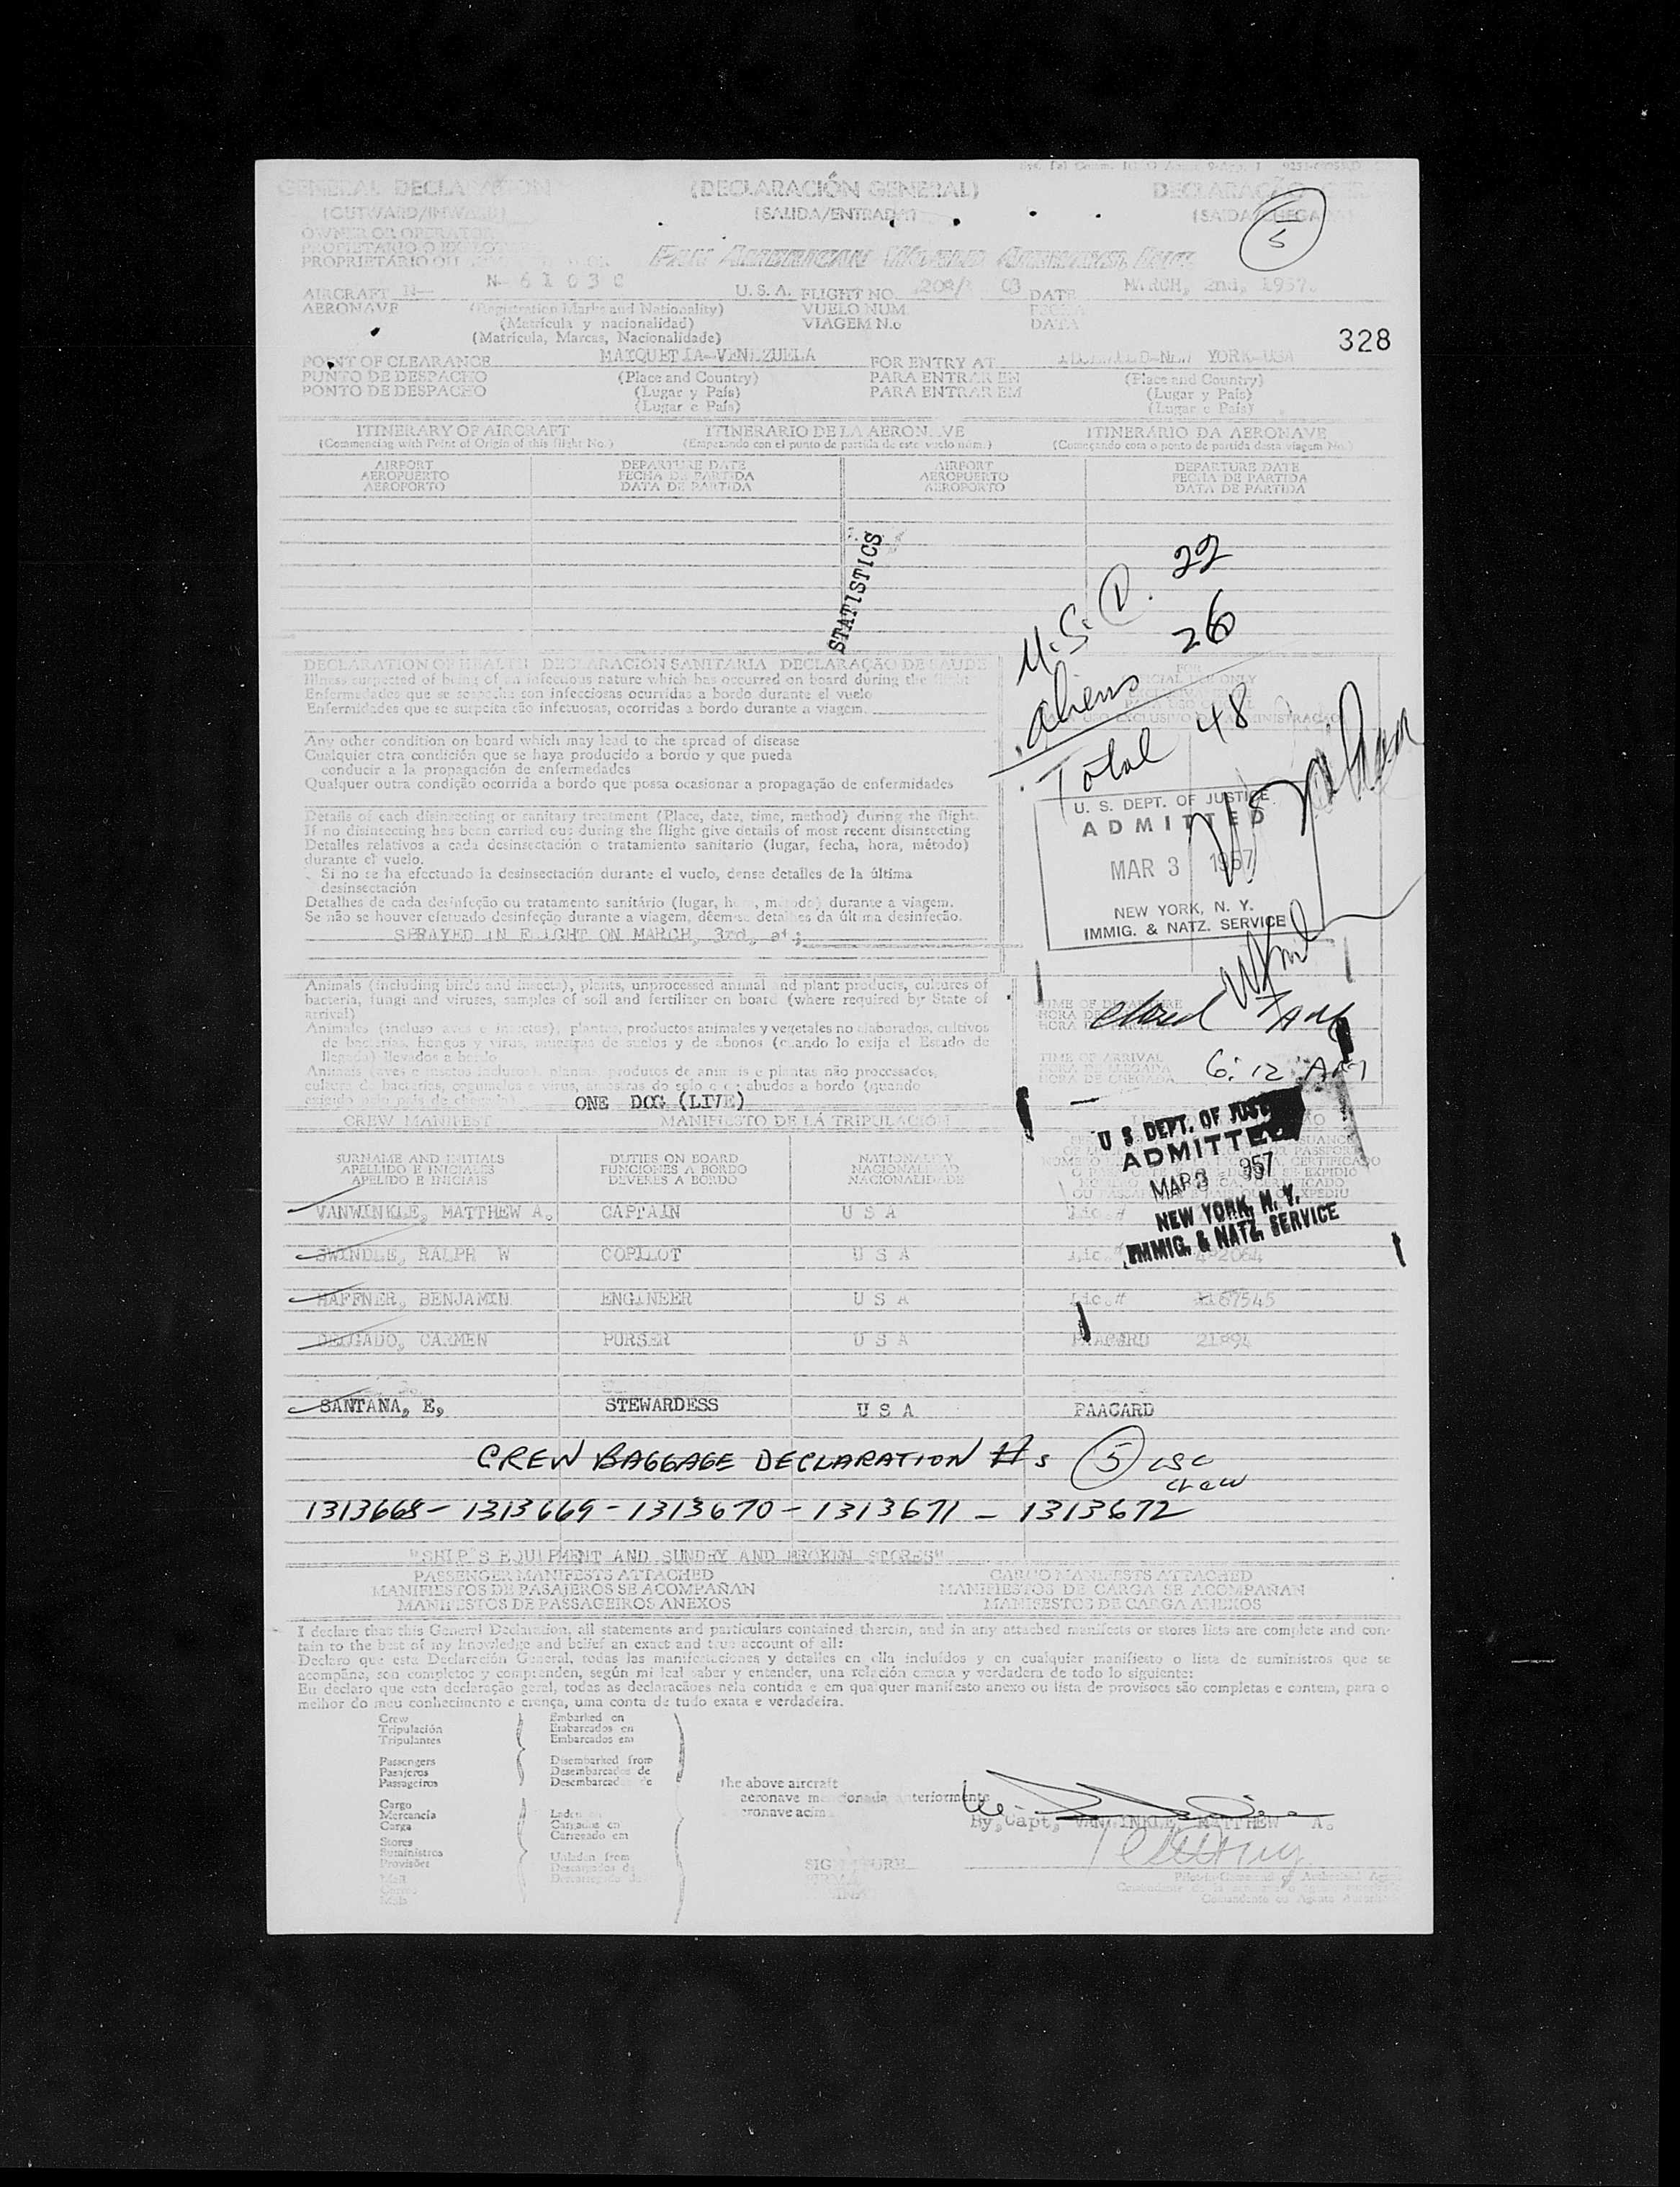 GENERAL DECLARATION (DECLARACIÓN GENERAL) DECLARAÇÃO
(OUTWARD/INWARD) (SALIDA/ENTRADA) (SAIDA/CHEGADA)
5
OWNER OR OPERATOR
PROPIETARIO O
PROPRIETÁRIO OU
PAN AMERICAN WORLD AIRWAYS, INC.
AIRCRAFT N— N- 6103C U.S.A. FLIGHT NO. DATE MARCH, 2nd, 1957.
AERONAVE (Registration Marks and Nationality) VUELO NUM. FECHA
(Matrícula y nacionalidad) VIAGEM N.o DATA
(Matrícula, Marcas, Nacionalidade)
328
POINT OF CLEARANCE MAIQUETIA-VENEZUELA FOR ENTRY AT IDLEWILD-NEW YORK-USA
PUNTO DE DESPACHO (Place and Country) PARA ENTRAR EN (Place and Country)
PONTO DE DESPACHO (Lugar y País) PARA ENTRAR EM (Lugar y País)
(Lugar e País) (Lugar e País)
ITINERARY OF AIRCRAFT ITINERARIO DE LA AERONAVE ITINERÁRIO DA AERONAVE
(Commencing with Point of Origin of this flight No.) (Empezando con el punto de partida de este vuelo núm.) (Começando com o ponto de partida desta viagem No.)
AIRPORT DEPARTURE DATE AIRPORT DEPARTURE DATE
AEROPUERTO FECHA DE PARTIDA AEROPUERTO FECHA DE PARTIDA
AEROPORTO DATA DE PARTIDA AEROPORTO DATA DE PARTIDA
STATISTICS
U.S.C. 22
Aliens 26
Total 48
DECLARATION OF HEALTH DECLARACIÓN SANITARIA DECLARAÇÃO DE SAUDE
Illness suspected of being of an infectious nature which has occurred on board during the flight
Enfermedades que se sospecha son infecciosas ocurridas a bordo durante el vuelo
Enfermidades que se suspeita são infetuosas, ocorridas a bordo durante a viagem.
Any other condition on board which may lead to the spread of disease
Cualquier otra condición que se haya producido a bordo y que pueda
conducir a la propagación de enfermedades
Qualquer outra condição ocorrida a bordo que possa ocasionar a propagação de enfermidades
Details of each disinsecting or sanitary treatment (Place, date, time, method) during the flight.
If no disinsecting has been carried out during the flight give details of most recent disinsecting
Detalles relativos a cada desinsectación o tratamiento sanitario (lugar, fecha, hora, método)
durante el vuelo.
Si no se ha efectuado la desinsectación durante el vuelo, dense detalles de la última
desinsectación
Detalhes de cada desinfeção ou tratamento sanitário (lugar, hora, metodo) durante a viagem.
Se não se houver efetuado desinfeção durante a viagem, dêem-se detalhes da última desinfeção.
SPRAYED IN FLIGHT ON MARCH, 3rd, at;
U. S. DEPT. OF JUSTICE
ADMITTED
MAR 3 1957
NEW YORK, N. Y.
IMMIG. & NATZ. SERVICE
Animals (including birds and insects), plants, unprocessed animal and plant products, cultures of
bacteria, fungi and viruses, samples of soil and fertilizer on board (where required by State of
arrival)
Animales (incluso aves e insectos), plantas, productos animales y vegetales no elaborados, cultivos
de bacterias, hongos y virus, muestras de suelos y de abonos (cuando lo exija el Estado de
llegada) llevados a bordo
ONE DOG (LIVE)
TIME OF DEPARTURE
TIME OF ARRIVAL 6:12 AM
HORA DE LLEGADA
HORA DE CHEGADA
U S DEPT. OF JUST
ADMITTED
MAR 3 957
NEW YORK, N. Y.
IMMIG. & NATZ. SERVICE
CREW MANIFEST MANIFIESTO DE LA TRIPULACIÓN
SURNAME AND INITIALS DUTIES ON BOARD NATIONALITY
APELLIDO E INICIALES FUNCIONES A BORDO NACIONALIDAD
APELIDO E INICIAIS DEVERES A BORDO NACIONALIDADE
VANWINKLE, MATTHEW A. CAPTAIN U S A Lic.#
SWINDLE, RALPH W COPILOT U S A Lic.#
HAFFNER, BENJAMIN ENGINEER U S A Lic.# 1167545
DELGADO, CARMEN PURSER U S A PAACARD
SANTANA, E, STEWARDESS U S A PAACARD
CREW BAGGAGE DECLARATION #s 5 USC
crew
1313668 - 1313669 - 1313670 - 1313671 - 1313672
"SHIP'S EQUIPMENT AND SUNDRY AND BROKEN STORES"
PASSENGER MANIFESTS ATTACHED CARGO MANIFESTS ATTACHED
MANIFIESTOS DE PASAJEROS SE ACOMPAÑAN MANIFIESTOS DE CARGA SE ACOMPAÑAN
MANIFESTOS DE PASSAGEIROS ANEXOS MANIFESTOS DE CARGA ANEXOS
I declare that this General Declaration, all statements and particulars contained therein, and in any attached manifests or stores lists are complete and con-
tain to the best of my knowledge and belief an exact and true account of all:
Declaro que esta Declaración General, todas las manifestaciones y detalles en ella incluídos y en cualquier manifiesto o lista de suministros que se
acompañe, son completos y comprenden, según mi leal saber y entender, una relación exacta y verdadera de todo lo siguiente:
Eu declaro que esta declaração geral, todas as declarações nela contida e em qualquer manifesto anexo ou lista de provisões são completas e contem, para o
melhor do meu conhecimento e crença, uma conta de tudo exata e verdadeira.
Crew Embarked on
Tripulación Embarcados en
Tripulantes Embarcados em
Passengers Disembarked from
Pasajeros Desembarcados de
Passageiros Desembarcados de
the above aircraft
aeronave mencionada anteriormente
aeronave acima
Cargo Laden on
Mercancía Cargados en
Carga Carregado em
Stores Unladen from
Suministros Descargados de
Provisões
By, Capt, VANWINKLE, MATTHEW A.
SIGNATURE
FIRMA
Pilot-in-Command of Authorized Agent
Comandante ou Agente